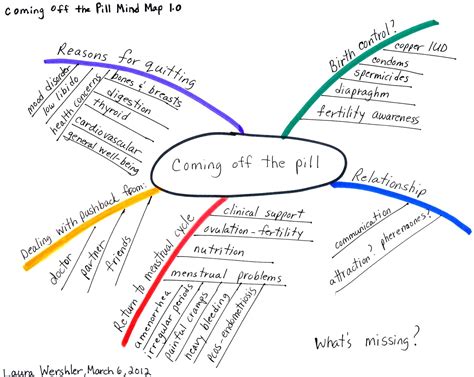 Coming off the Pill Mind Map 1.0
Reasons for quitting
mood disorder
low libido
health concerns
bones & breasts
digestion
thyroid
cardiovascular
general well-being
Birth control?
copper IUD
condoms
spermicides
diapraghm
fertility awareness
Coming off the pill
Relationship
communication
attraction? pheromones?
Dealing with pushback from:
doctor
partner
friends
Return to menstrual cycle
clinical support
ovulation-fertility
nutrition
menstrual problems
amenorrhea
irregular periods
painful cramps
heavy bleeding
PCOS-endometriosis
What's missing?
Laura Wershler, March 6, 2012